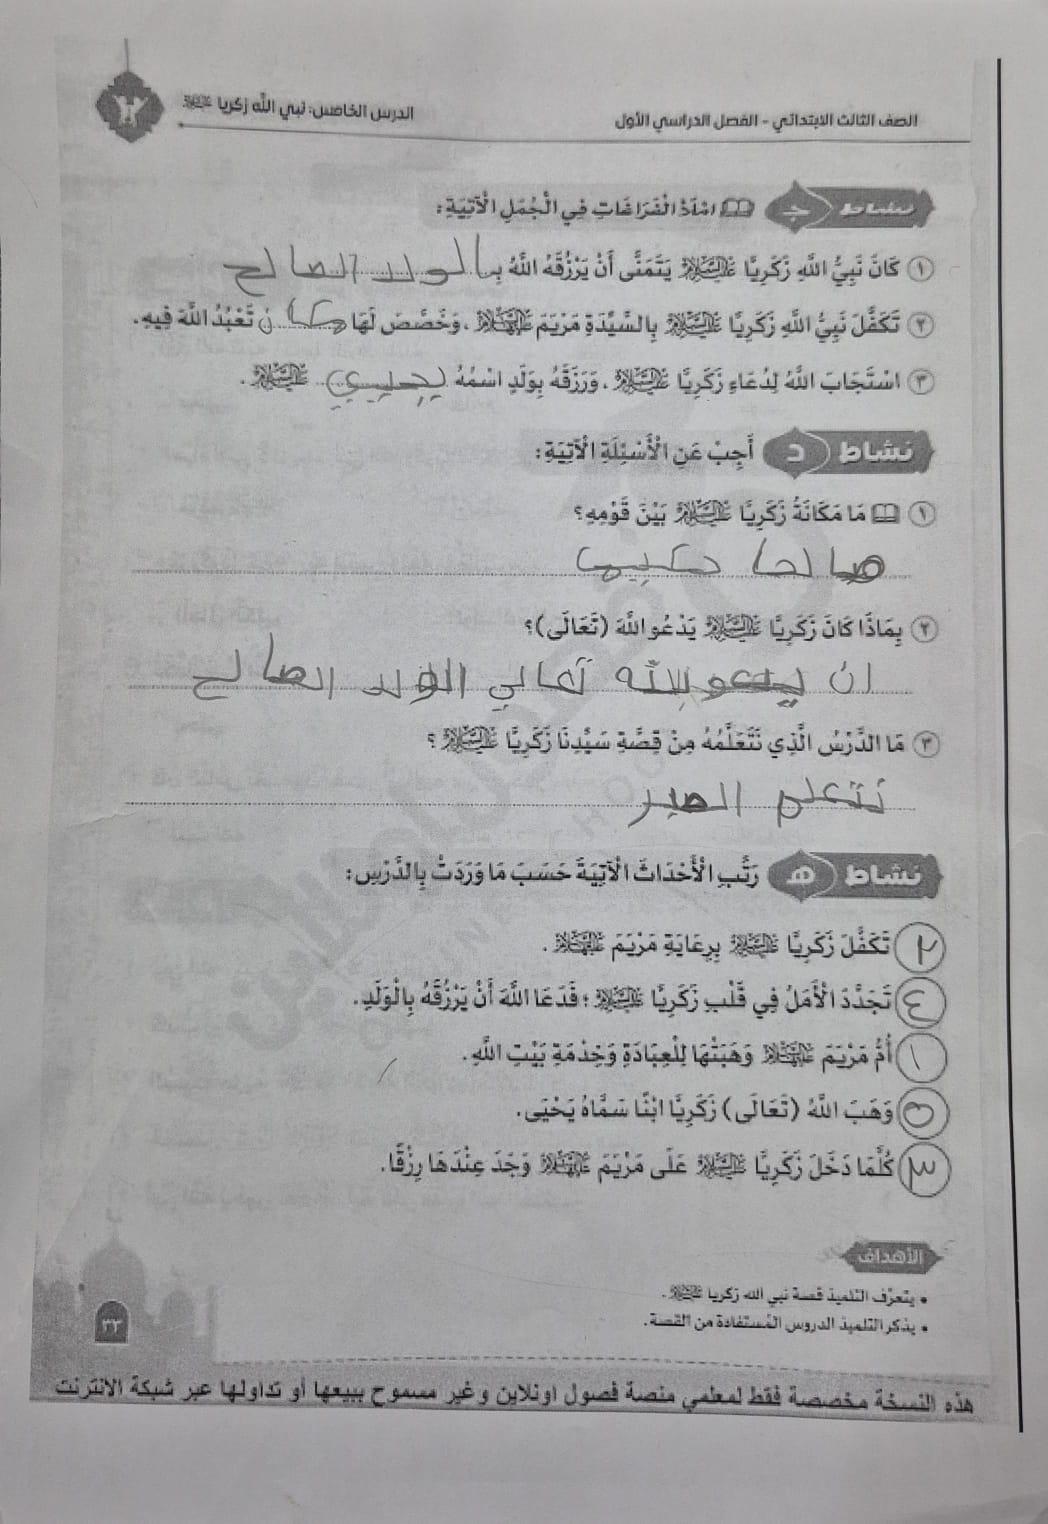 الصف الثالث الابتدائي - الفصل الدراسي الأول
الدرس الخامس: نبي الله زكريا عليه السلام
نشاط ج امْلَأْ الْفَرَاغَاتِ فِي الْجُمَلِ الْآتِيَةِ:
١ كَانَ نَبِيُّ اللَّهِ زَكَرِيَّا عَلَيْهِ السَّلَامُ يَتَمَنَّى أَنْ يَرْزُقَهُ اللَّهُ بِالولد الصالح
٢ تَكَفَّلَ نَبِيُّ اللَّهِ زَكَرِيَّا عَلَيْهِ السَّلَامُ بِالسَّيِّدَةِ مَرْيَمَ عَلَيْهَا السَّلَامُ، وَخَصَّصَ لَهَا مكان تَعْبُدُ اللَّهَ فِيهِ.
٣ اسْتَجَابَ اللَّهُ لِدُعَاءِ زَكَرِيَّا عَلَيْهِ السَّلَامُ، وَرَزَقَهُ بِوَلَدٍ اسْمُهُ يحيي عَلَيْهِ السَّلَامُ.
نشاط د أَجِبْ عَنِ الْأَسْئِلَةِ الْآتِيَةِ:
١ مَا مَكَانَةُ زَكَرِيَّا عَلَيْهِ السَّلَامُ بَيْنَ قَوْمِهِ؟
صالحا حكيما
٢ بِمَاذَا كَانَ زَكَرِيَّا عَلَيْهِ السَّلَامُ يَدْعُو اللَّهَ (تَعَالَى)؟
ان يدعو الله تعالي الولد الصالح
٣ مَا الدَّرْسُ الَّذِي نَتَعَلَّمُهُ مِنْ قِصَّةِ سَيِّدِنَا زَكَرِيَّا عَلَيْهِ السَّلَامُ؟
نتعلم الصبر
نشاط هـ رَتِّبِ الْأَحْدَاثَ الْآتِيَةَ حَسَبَ مَا وَرَدَتْ بِالدَّرْسِ:
٢ تَكَفَّلَ زَكَرِيَّا عَلَيْهِ السَّلَامُ بِرِعَايَةِ مَرْيَمَ عَلَيْهَا السَّلَامُ.
٤ تَجَدَّدَ الْأَمَلُ فِي قَلْبِ زَكَرِيَّا عَلَيْهِ السَّلَامُ؛ فَدَعَا اللَّهَ أَنْ يَرْزُقَهُ بِالْوَلَدِ.
١ أُمُّ مَرْيَمَ عَلَيْهَا السَّلَامُ وَهَبَتْهَا لِلْعِبَادَةِ وَخِدْمَةِ بَيْتِ اللَّهِ.
٥ وَهَبَ اللَّهُ (تَعَالَى) زَكَرِيَّا ابْنًا سَمَّاهُ يَحْيَى.
٣ كُلَّمَا دَخَلَ زَكَرِيَّا عَلَيْهِ السَّلَامُ عَلَى مَرْيَمَ عَلَيْهَا السَّلَامُ وَجَدَ عِنْدَهَا رِزْقًا.
الأهداف
• يتعرف التلميذ قصة نبي الله زكريا عليه السلام.
• يذكر التلميذ الدروس المُستفادة من القصة.
٣٣
هذه النسخة مخصصة فقط لمعلمي منصة فصول اونلاين وغير مسموح ببيعها أو تداولها عبر شبكة الانترنت